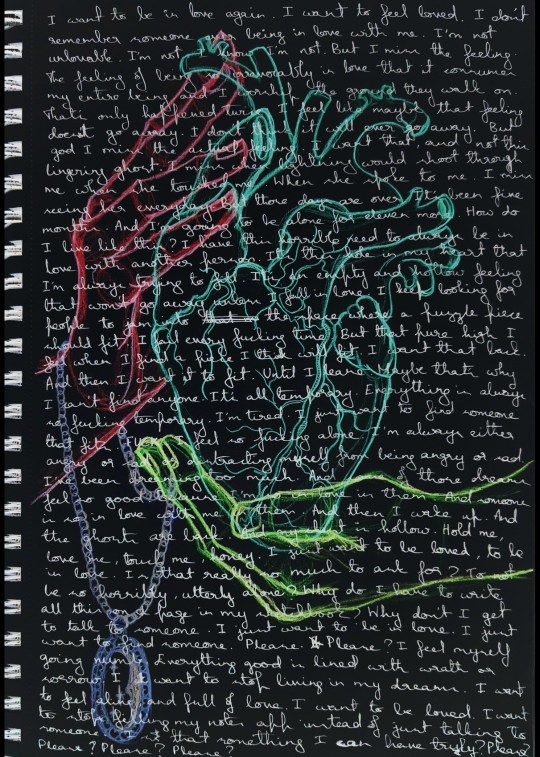 I want to be in love again. I want to feel loved. I don't
remember someone ever being in love with me. I'm not
unlovable. I'm not I know I'm not. But I miss the feeling.
The feeling of being so in love that it consumes
my entire being and the ground they walk on.
That's only happened I feel like maybe that feeling
doesn't go away. I don't will ever go away. But
god I miss the actual feeling. I want that and not this
lingering ghost. I lightning would shoot through
me when she touched me. When she spoke to me. I miss
seeing her everyday but those days are over. It's been five
months. And I'm going to be alone for eleven more. How do
I live like this? I have this horrible need to always be in
love with another person. that
I'm always trying to empty and hollow feeling
that won't go away when I fall in love. I keep looking for
people to the space where a puzzle piece
should fit. I feel every fucking time. But that pure high I
feel when I find a piece I think will fit, I want that back.
And then I want it to fit. Until I learn maybe that's why
I can't find anyone. It's all temporary. Everything is always
so fucking temporary. I'm tired. I just want to find someone
that fits. I feel so fucking alone. I'm always either
angry or sad or distracting myself from being angry or sad.
I've been dreaming so much. And of those dreams
feel so good because in them. And someone
is so in love with them. And then I wake up. And
the ghosts are back my chest is hollow. Hold me,
love me, touch me, honey. I just want to be loved, to be
in love. Is that really so much to ask for? I'm not
be so horribly, utterly alone. Why do I have to write
all this on a page in my Why don't I get
to talk to someone. I just want to be in love. I just
want to find someone. Please. Please? I feel myself
going numb. Everything good is lined with wrath or
sorrow. I want to stop living in my dreams. I want
to feel alive and full of love. I want to be loved. I want
to stop my notes app instead of just talking to
someone. Is that something I can have truly? Please
Please? Please? Please?